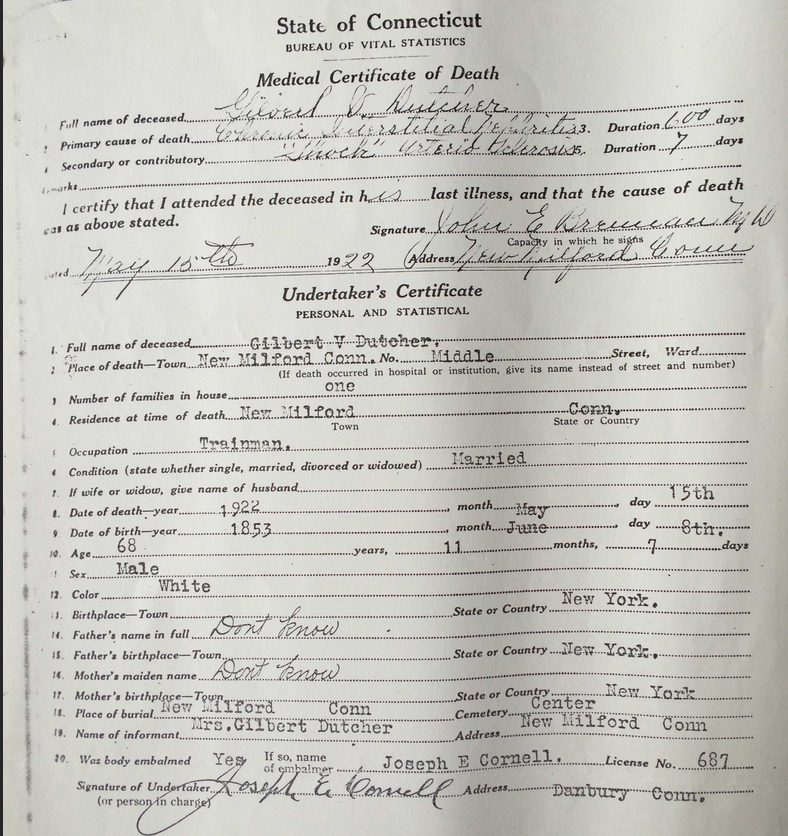 State of Connecticut
BUREAU OF VITAL STATISTICS
Medical Certificate of Death
Full name of deceased V Dutcher
Primary cause of death Chronic Interstitial Nephritis 3. Duration days
Secondary or contributory "Shock" Arterio Sclerosis 5. Duration 7 days
I certify that I attended the deceased in his last illness, and that the cause of death
as above stated.
Signature John E Brennan M D
Capacity in which he signs
May 15th 1922 Address New Milford Conn
Undertaker's Certificate
PERSONAL AND STATISTICAL
1. Full name of deceased Gilbert V Dutcher.
2 Place of death—Town New Milford Conn. No. Middle Street, Ward
(If death occurred in hospital or institution, give its name instead of street and number)
3 Number of families in house one
4. Residence at time of death New Milford Conn.
Town State or Country
5 Occupation Trainman.
6 Condition (state whether single, married, divorced or widowed) Married
7. If wife or widow, give name of husband
8. Date of death—year 1922, month May, day 15th
9 Date of birth—year 1853, month June, day 8th.
10. Age 68 years, 11 months, 7 days
Sex Male
12. Color White
13. Birthplace—Town State or Country New York.
14. Father's name in full Dont know
15. Father's birthplace—Town State or Country New York.
16. Mother's maiden name Dont know
17. Mother's birthplace—Town State or Country New York
18. Place of burial New Milford Conn Cemetery Center
19. Name of informant Mrs. Gilbert Dutcher Address New Milford Conn
20. Was body embalmed Yes If so, name of embalmer Joseph E Cornell. License No. 687
Signature of Undertaker Joseph E. Cornell Address Danbury Conn.
(or person in charge)